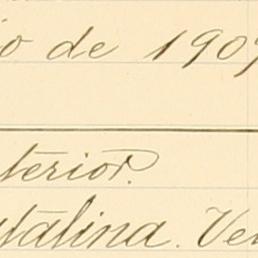 io de 1907
terior.
atalina. Ve